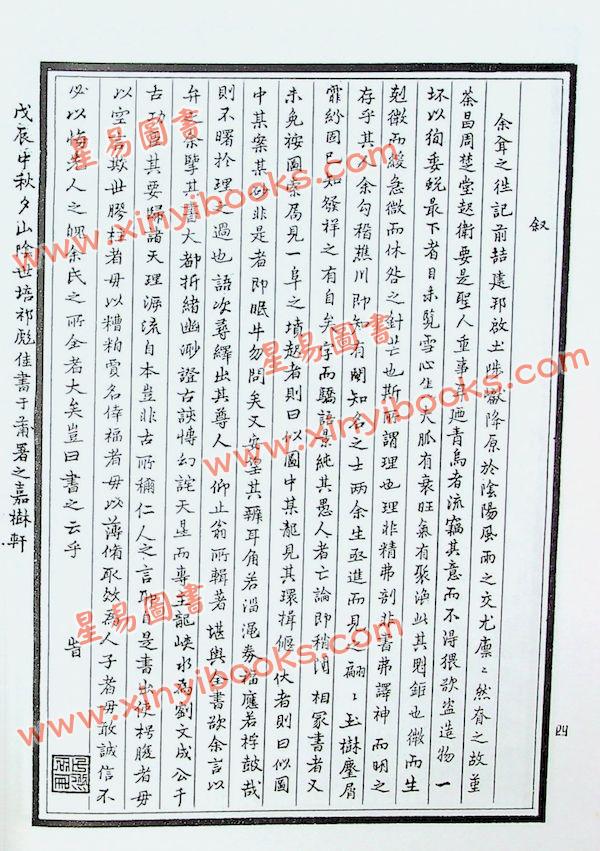 叙
余耷之徃記前喆建邦啟土陟巘降原於陰陽風雨之交尤凜〻然眘之故堇
荼昌周楚堂起衛要是聖人重事耳廼青烏者流竊其意而不得猥欲盜造物一
坏以徇委蛻最下者目未覽雪心坐大脈有衰旺氣有聚渙此其則鉅也微而生
剋微而緩急微而休咎之針芒也斯所謂理也理非精弗剖非書弗譯神而明之
存乎其人余勾稽樵川即知有閩知名之士两余生亟進而見之翩〻玉樹麈屑
霏紛固已知發祥之有自矣 字而驕語景純其愚人者亡論即稍閲相冢書者又
未免按圖索 見一阜之墳起者則曰似圖中某龍見其環揖偃伏者則曰似圖
中某案某砂非是者即眠牛勿問矣又安望其辯耳角若淄澠券福應若桴鼓哉
則不曙於理之過也語次尋繹出其尊人 仰止翁所輯著堪輿全書欲余言以
弁之余擘其書大都析緒幽渺證古談博幻詫天星而專主龍峽水為劉文成公千
古功 其要歸諸天理源流自本豈非古所稱仁人之言 自是書出使枵腹者毋
以空言欺世膠柱者毋以糟粕賣名倖福者毋以薄脩取 為人子者毋敢誠信不
必以悔 人之 余氏之所全者大矣豈曰書之云乎
旹
戊辰中秋夕山陰世培祁彪佳書于莆署之嘉樹軒
24
星易圖書
www.xinyibooks.com
星易圖書
www.xinyibooks.com
星易圖書
www.xinyibooks.com